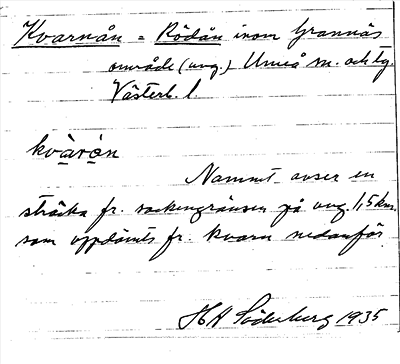 Kvarnån = Rödån inom Grannäs
område (avg.) Umeå sn. och tg.
Västerb. l.
kvàrǹ̥ȧn
Namnet avser en
sträcka fr. sockengränsen på ung. 1,5 km.
som uppdämts fr. kvarn nedanför.
H A Söderberg 1935